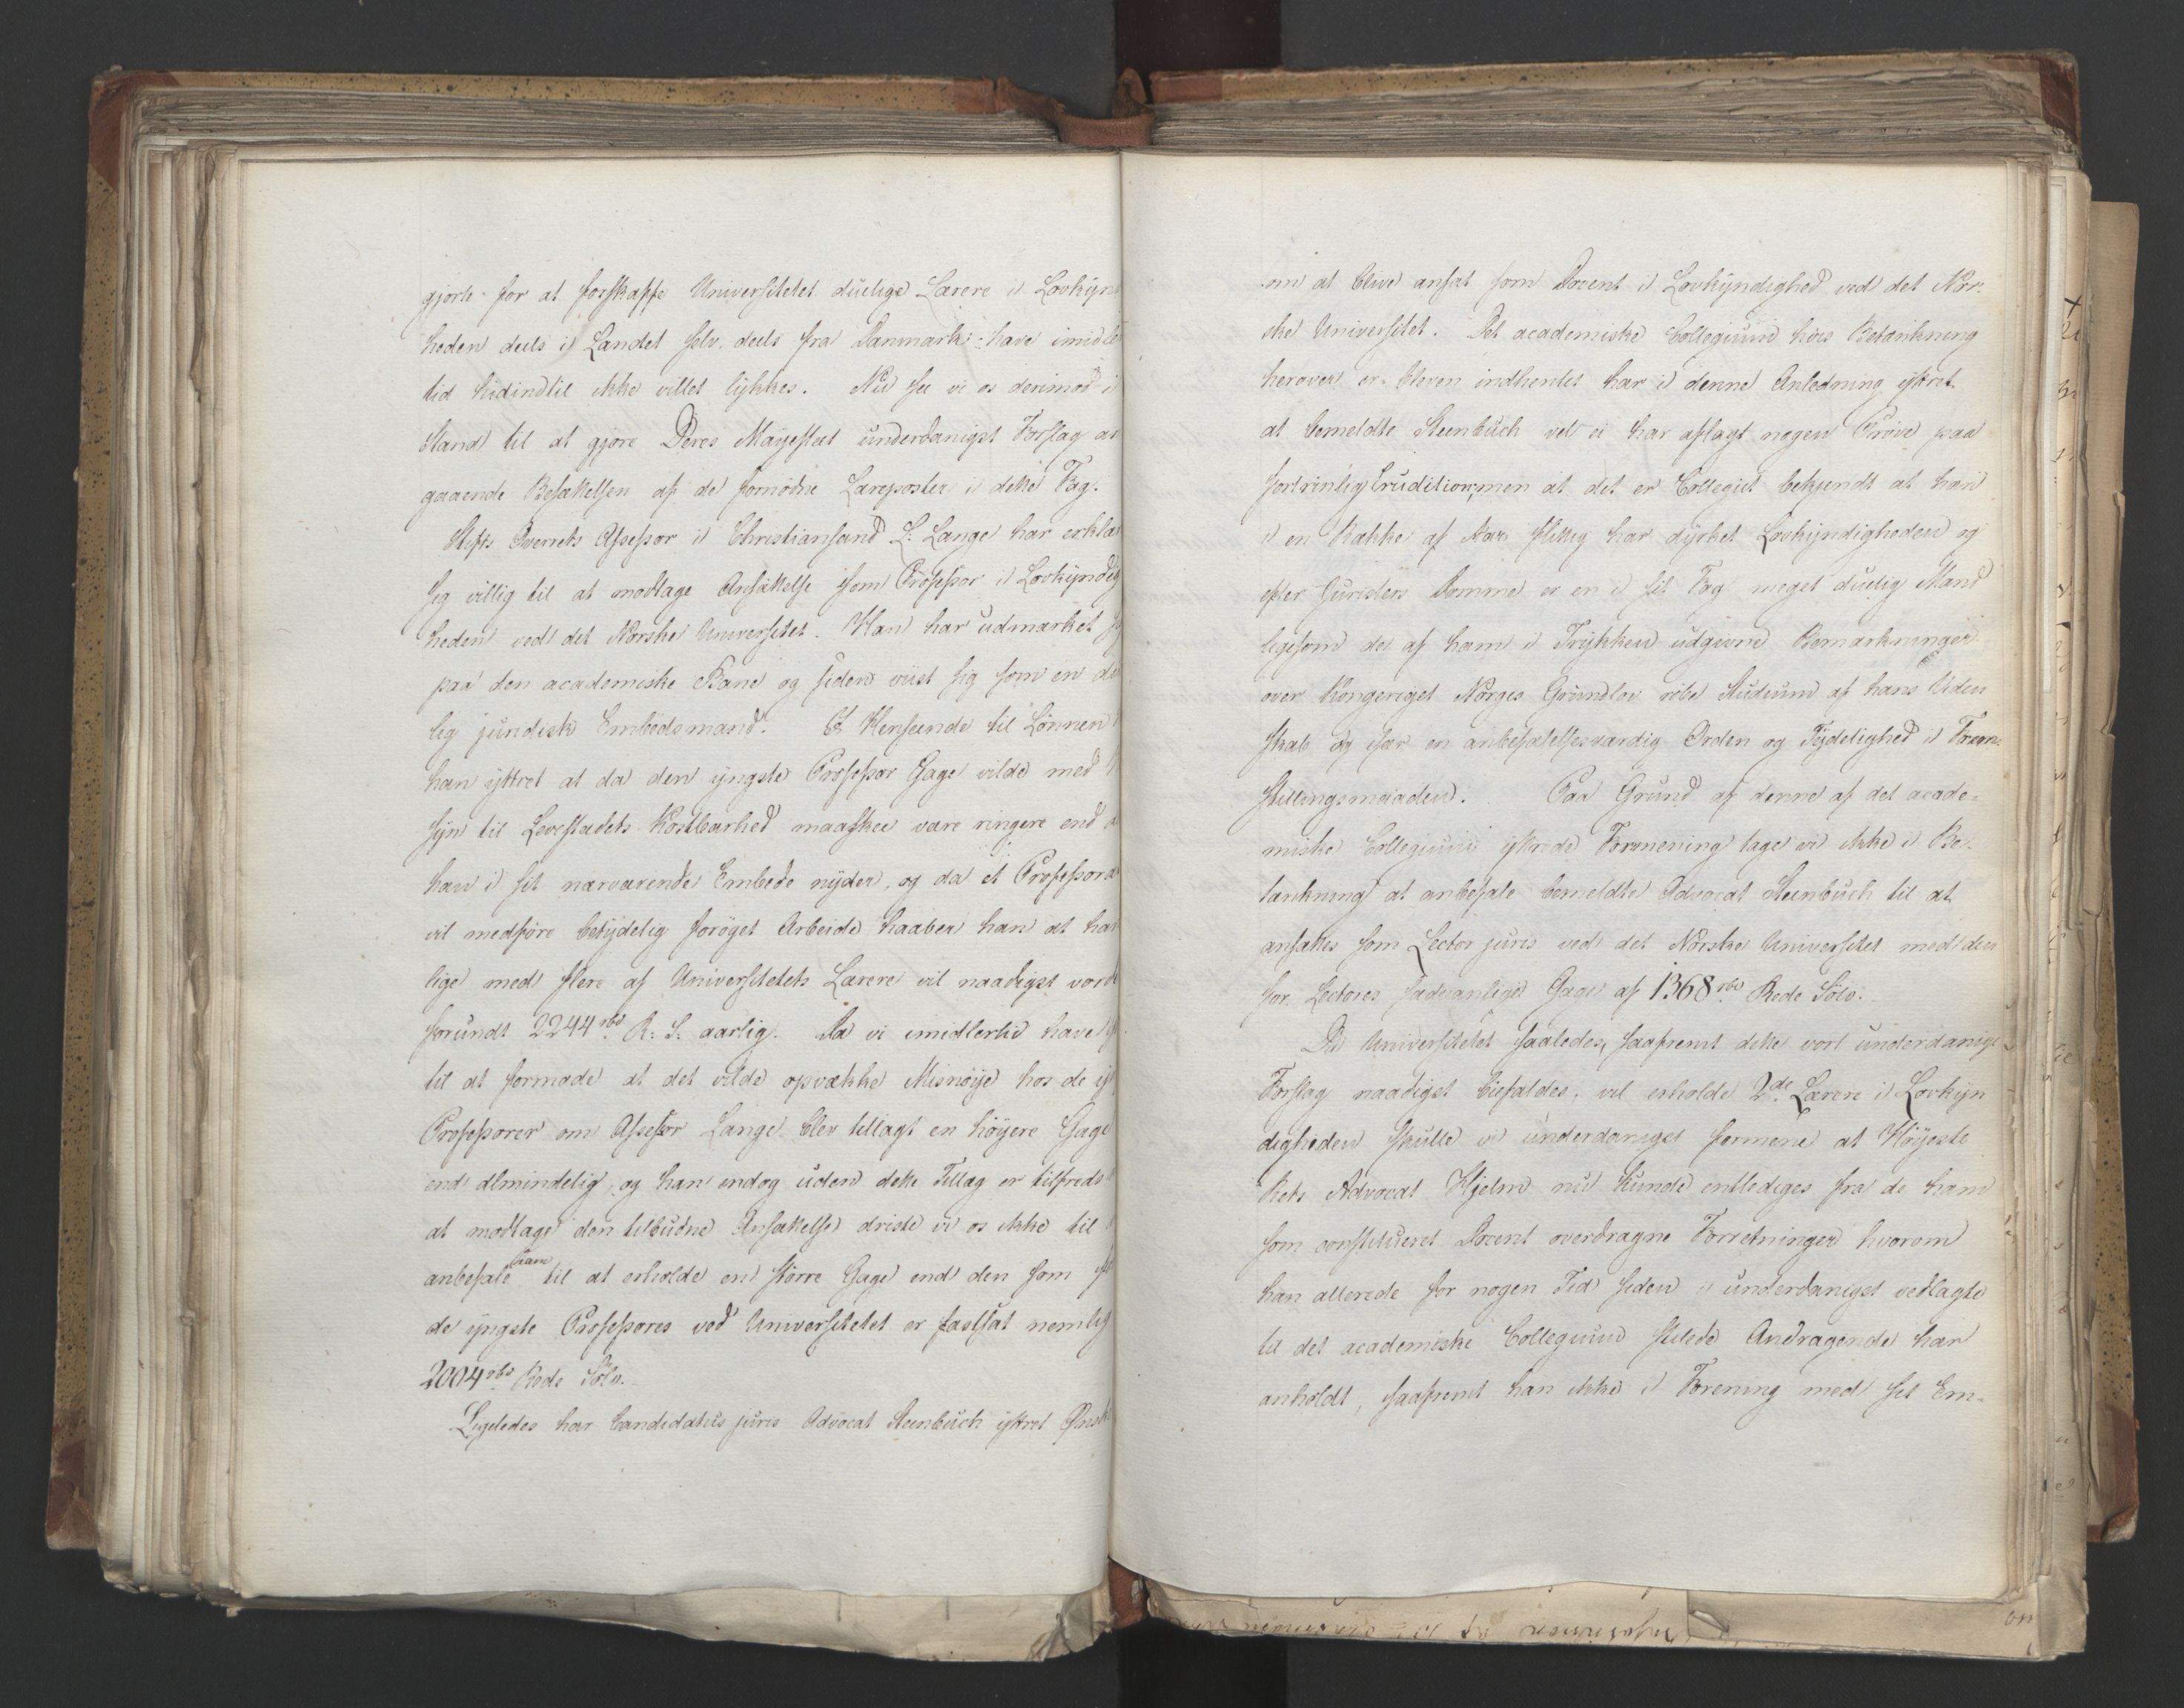 gjorte for at forskaffe Universitetet duelige Lærere i Lovkyn
heden deels i Landet selv, deels fra Danmark, have imidler
tid hidindtil ikke villet lykkes. Nu see vi os derimod i
stand til at gjøre Deres Majestæt underdanigst Forslag an
gaaende Besættelsen af de fornødne Læreposter i dette Fag.
Stifts Overrets Assessor i Christiansand L. Lange har erklæ
sig villig til at modtage Ansættelse som Professor i Lovkyndig
heden ved det Norske Universitet. Han har udmærket
paa den academiske Bane og siden viist sig som en du
lig juridisk Embedsmand. I Henseende til Lønnen
han yttret at da den yngste Professor Gage vilde med
syn til Levestædets Kostbarhed maaskee være ringere end
han i sit nærværende Embede nyder, og da et Professora
vil medføre betydelig forøget Arbeide haaber han at han
lige med flere af Universitetets Lærere vil naadigst vorde
forundt 2244 rbd R: S: aarlig. Da vi imidlertid have
til at formode at det vilde opvække Misnøije hos de
Professorer om Assessor Lange blev tillagt en høyere Gage
end almindelig, og han endog uden dette Tillæg er tilfreds
at modtage den tilbudne Ansættelse driste vi os ikke til
anbefale ham til at erholde en større Gage end den som
de yngste Professores ved Universitetet er fastsat nemlig
2004 rbd Rede Sølv.
Ligeledes har Candidatus juris Advocat Steenbuch yttret Ønske
om at blive ansat som Docent i Lovkyndighed ved det Nor-
ske Universitet. Det academiske Collegium hvis Betænkning
herover er bleven indhentet har i denne Anledning yttret
at bemeldte Steenbuch vel ei har aflagt nogen Prøve paa
fortrinlig Erudition, men at det er Collegiet bekjendt at han
i en Række af Aar flittig har dyrket Lovkyndigheden og
efter Juristers Domme er en i sit Fag meget duelig Mand
ligesom de af ham i Trykken udgivne Bemærkninger
over Kongeriget Norges Grundlov røbe Studium af hans Viden
skab og især en anbefalelsesværdig Orden og Tydelighed i Frem-
stillingsmaaden. Paa Grund af denne af det acade-
miske Collegium yttrede Formening tage vi ikke i Be-
tænkning at anbefale bemeldte Advocat Steenbuch til at
ansættes som Lector juris ved det Norske Universitet med den
for Lectores sædvanlige Gage af 1368 rbd Rede Sølv.
Da Universitetet saaledes, saafremt dette vort underdanige
Forslag naadigst biefaldes, vil erholde 2de Lærere i Lovkyn
digheden skulle vi underdanigst formene at Høyeste
Rets Advocat Hjelm nu kunde entlediges fra de ham
som constitueret Docent overdragne Forretninger hvorom
han allerede for nogen Tid siden i underdanigst vedlagte
til det academiske Collegium stilede Andragende har
anholdt, saafremt han ikke i Forening med sit Em-